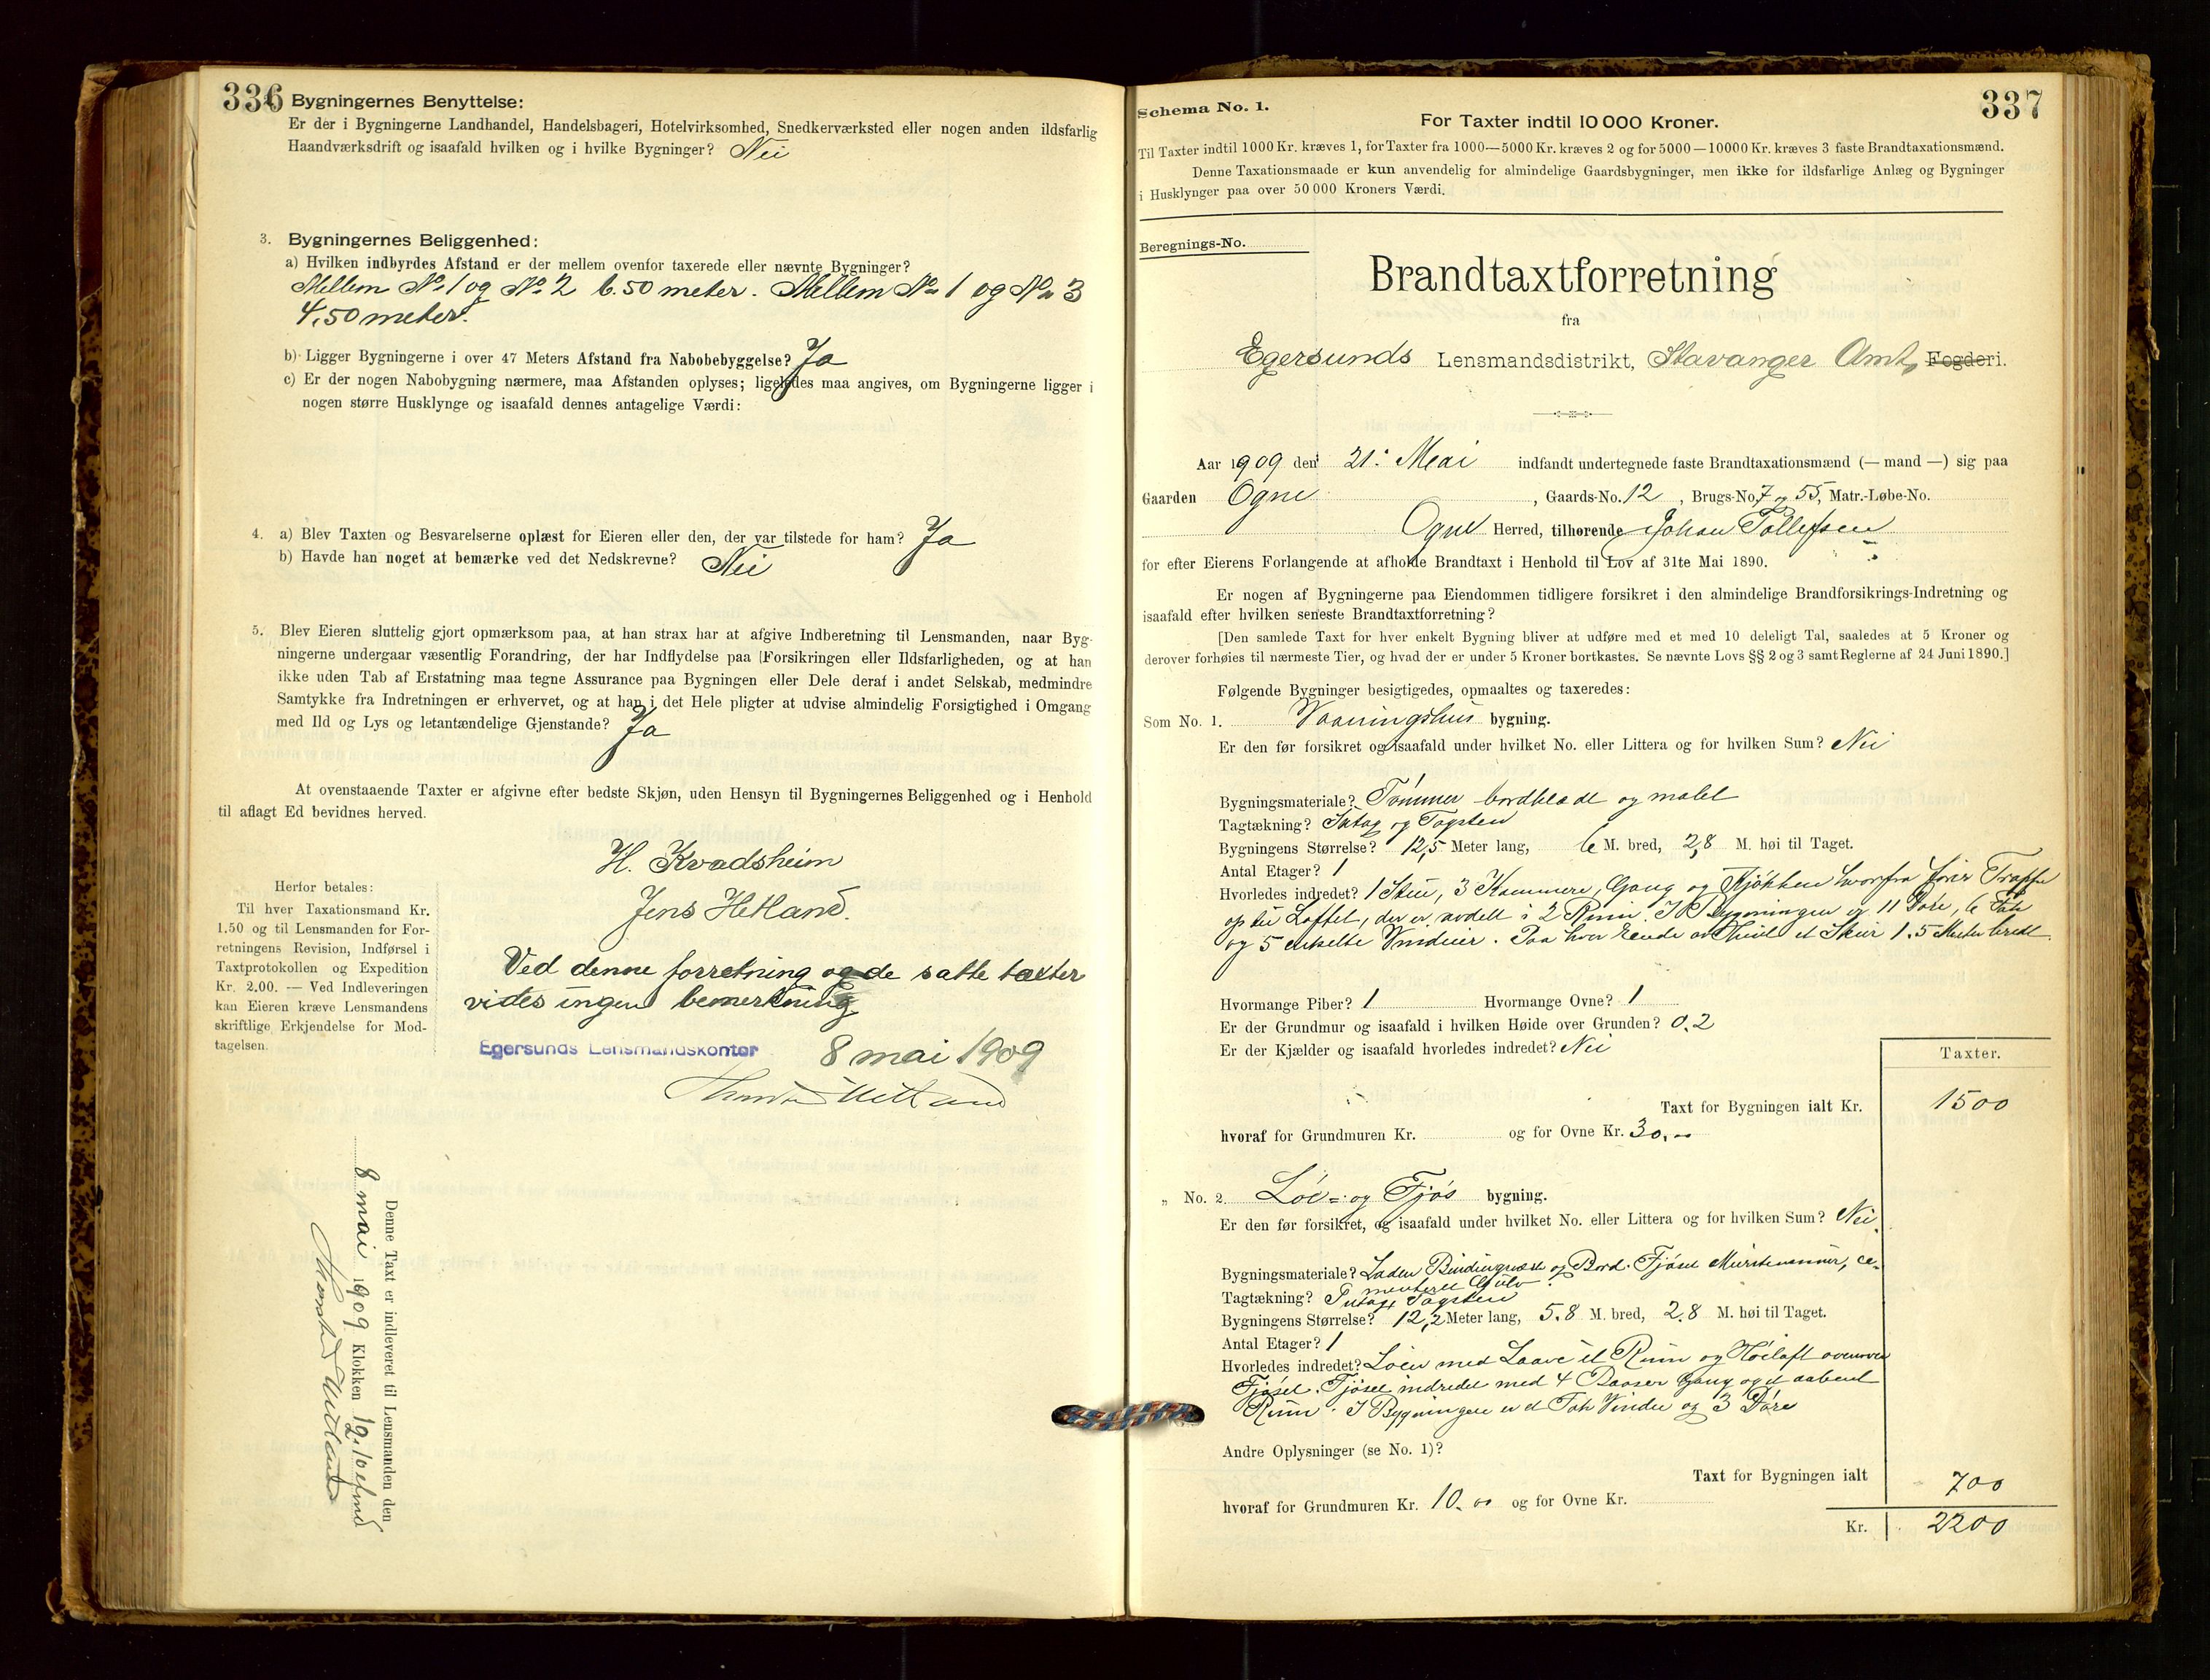 336
Bygningernes Benyttelse:
Er der i Bygningerne Landhandel, Handelsbageri, Hotelvirksomhed, Snedkerværksted eller nogen anden ildsfarlig
Haandværksdrift og isaafald hvilken og i hvilke Bygninger? Nei
3. Bygningernes Beliggenhed:
a) Hvilken indbyrdes Afstand er der mellem ovenfor taxerede eller nævnte Bygninger?
Mellem No 1 og No 2 6.50 meter. Mellem No 1 og No 3
4.50 meter.
b) Ligger Bygningerne i over 47 Meters Afstand fra Nabobebyggelse? Ja
c) Er der nogen Nabobygning nærmere, maa Afstanden oplyses; ligeledes maa angives, om Bygningerne ligger i
nogen større Husklynge og isaafald dennes antagelige Værdi:
4. a) Blev Taxten og Besvarelserne oplæst for Eieren eller den, der var tilstede for ham? Ja
b) Havde han noget at bemærke ved det Nedskrevne? Nei
5. Blev Eieren sluttelig gjort opmærksom paa, at han strax har at afgive Indberetning til Lensmanden, naar Byg-
ningerne undergaar væsentlig Forandring, der har Indflydelse paa Forsikringen eller Ildsfarligheden, og at han
ikke uden Tab af Erstatning maa tegne Assurance paa Bygningen eller Dele deraf i andet Selskab, medmindre
Samtykke fra Indretningen er erhvervet, og at han i det Hele pligter at udvise almindelig Forsigtighed i Omgang
med Ild og Lys og letantændelige Gjenstande? Ja
At ovenstaaende Taxter er afgivne efter bedste Skjøn, uden Hensyn til Bygningernes Beliggenhed og i Henhold
til aflagt Ed bevidnes herved.
H. Kvadsheim
Jens Hetland.
Herfor betales:
Til hver Taxationsmand Kr.
1.50 og til Lensmanden for For-
retningens Revision, Indførsel i
Taxtprotokollen og Expedition
Kr. 2.00. — Ved Indleveringen
kan Eieren kræve Lensmandens
skriftlige Erkjendelse for Mod-
tagelsen.
Ved denne forretning og de satte taxter
vides ingen bemerkning
Egersunds Lensmandskontor 8 mai 1909
Denne Taxt er indleveret til Lensmanden den
8 mai 1909 Klokken 12,10 efmd
337
Schema No. 1.
For Taxter indtil 10 000 Kroner.
Til Taxter indtil 1000 Kr. kræves 1, for Taxter fra 1000—5000 Kr. kræves 2 og for 5000—10000 Kr. kræves 3 faste Brandtaxationsmænd.
Denne Taxationsmaade er kun anvendelig for almindelige Gaardsbygninger, men ikke for ildsfarlige Anlæg og Bygninger
i Husklynger paa over 50 000 Kroners Værdi.
Beregnings-No.
Brandtaxtforretning
fra
Egersunds Lensmandsdistrikt, Stavanger Amt, Fogderi.
Aar 1909 den 21. Mai indfandt undertegnede faste Brandtaxationsmænd (— mand —) sig paa
Gaarden Ogne, Gaards-No. 12, Brugs-No. 7 og 55, Matr.-Løbe-No.
Ogne Herred, tilhørende Johan Tollefsen
for efter Eierens Forlangende at afholde Brandtaxt i Henhold til Lov af 31te Mai 1890.
Er nogen af Bygningerne paa Eiendommen tidligere forsikret i den almindelige Brandforsikrings-Indretning og
isaafald efter hvilken seneste Brandtaxtforretning?
[Den samlede Taxt for hver enkelt Bygning bliver at udføre med et med 10 deleligt Tal, saaledes at 5 Kroner og
derover forhøies til nærmeste Tier, og hvad der er under 5 Kroner bortkastes. Se nævnte Lovs §§ 2 og 3 samt Reglerne af 24 Juni 1890.]
Følgende Bygninger besigtigedes, opmaaltes og taxeredes:
Som No. 1. Vaaningshus bygning.
Er den før forsikret og isaafald under hvilket No. eller Littera og for hvilken Sum? Nei
Bygningsmateriale? Tømmer bordklædt og malet
Tagtækning? Tagsten
Bygningens Størrelse? 12,5 Meter lang, 6 M. bred, 2,8 M. høi til Taget.
Antal Etager? 1
Hvorledes indredet? 1 Stue, 3 Kammere, Gang og Kjøkken hvorfra fører Trappe
op til Loftet, der er avdelt i 2 Rum. I Bygningen er 11 Døre, 6 Fak
og 5 enkelte Vinduer. Paa hver Ende av Huset et Skur 1.5 Meter bredt.
Hvormange Piber? 1 Hvormange Ovne? 1
Er der Grundmur og isaafald i hvilken Høide over Grunden? 0.2
Er der Kjælder og isaafald hvorledes indredet? Nei
Taxter.
Taxt for Bygningen ialt Kr. 1500
hvoraf for Grundmuren Kr. og for Ovne Kr. 30.-
" No. 2. Løe- og Fjøs bygning.
Er den før forsikret, og isaafald under hvilket No. eller Littera og for hvilken Sum? Nei.
Bygningsmateriale? Laden Bindingsværk og Bord. Fjøset Murstensmur, ce-
menteret Gulv.
Tagtækning? Tagsten
Bygningens Størrelse? 12,2 Meter lang, 5.8 M. bred, 2.8 M. høi til Taget.
Antal Etager? 1
Hvorledes indredet? Løen med Laave et Rum og Høeloft ovenover
Fjøset. Fjøset indredet med 4 Baaser Gang og et aabent
Rum. I Bygningen er et Fak Vindu og 3 Døre
Andre Oplysninger (se No. 1)?
Taxt for Bygningen ialt 700
hvoraf for Grundmuren Kr. 10.00 og for Ovne Kr.
Kr. 2200